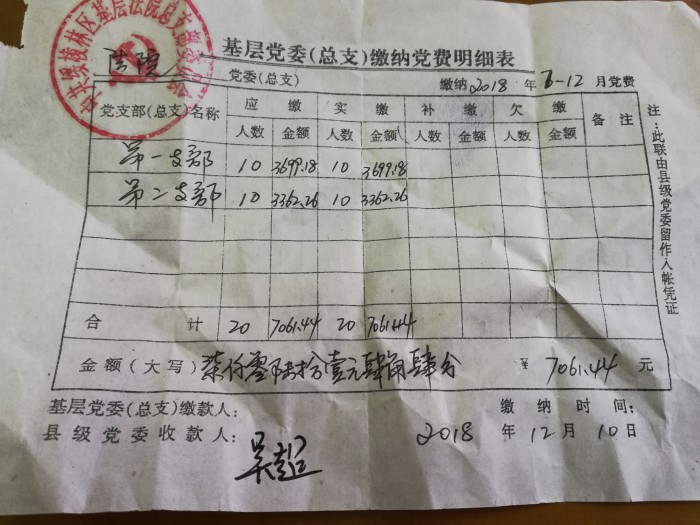 基层党委(总支)缴纳党费明细表
法院 党委(总支) 缴纳2018年7-12月党费
党支部(总支)名称 应缴 实缴 补缴 欠缴 备注
人数 金额 人数 金额 人数 金额 人数 金额
第一支部 10 3699.18 10 3699.18
第二支部 10 3362.26 10 3362.26
合计 20 7061.44 20 7061.44
金额(大写)柒仟零陆拾壹元肆角肆分 ¥ 7061.44 元
基层党委(总支)缴款人: 缴纳时间:
县级党委收款人: 吴超 2018年12月10日
注:此联由县级党委留作入帐凭证